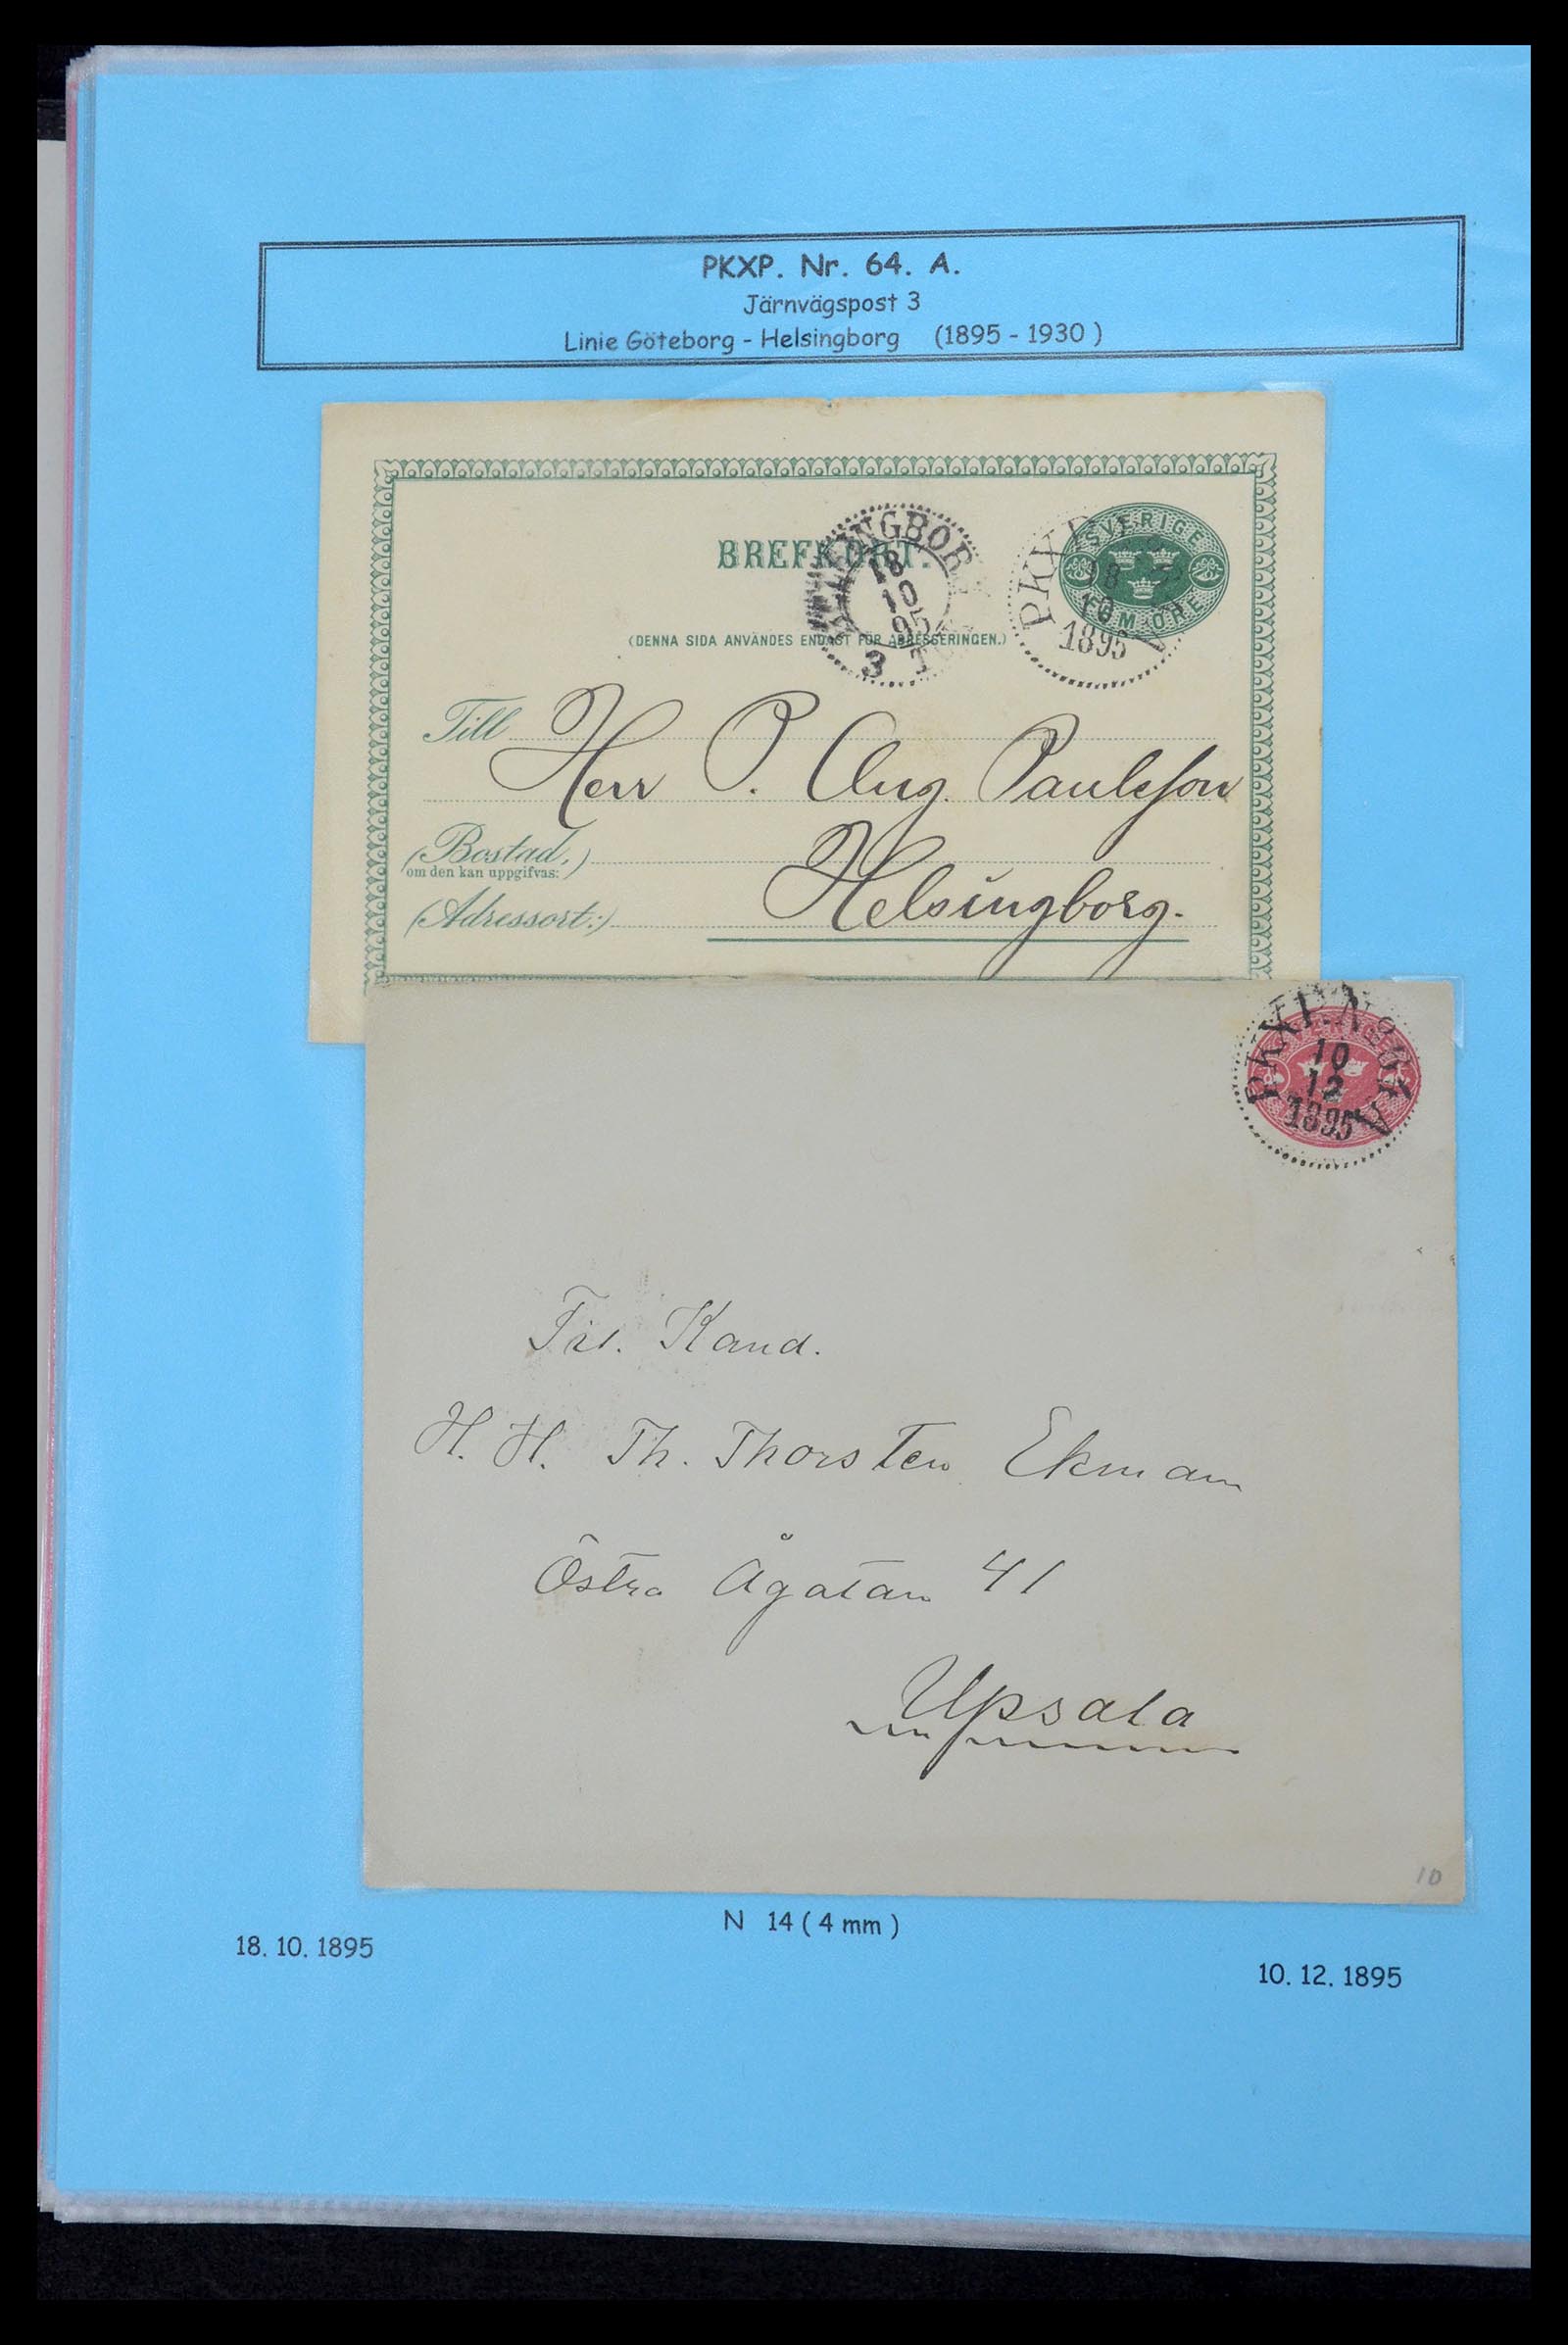 PKXP. Nr. 64. A.
Järnvägspost 3
Linie Göteborg - Helsingborg (1895 - 1930 )
SVERIGE
FEM ÖRE
PKXP
18
10
1895
A
HELSINGBORG
18
10
95
3 TUR
BREFKORT.
(DENNA SIDA ANVÄNDES ENDAST FÖR ADRESSERINGEN.)
Till Herr P. Aug. Paulsson
(Bostad,)
om den kan uppgifvas:
(Adressort:) Helsingborg.
PKXP. Nº 64 A
10
12
1895
Kand.
H. H. Th. Thorsten Ekman
Östra Ågatan 41
Upsala
10
N 14 ( 4 mm )
18. 10. 1895
10. 12. 1895